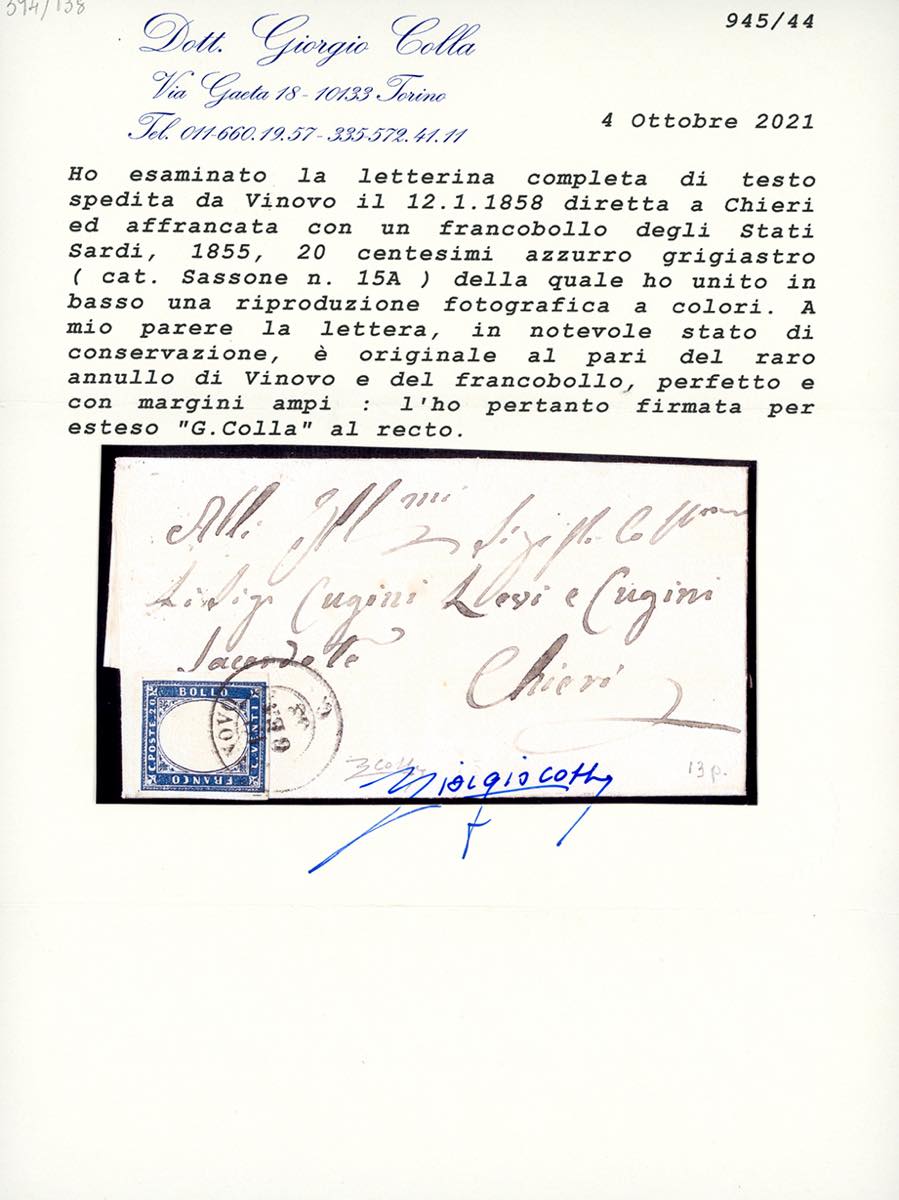 594/138
945/44
Dott. Giorgio Colla
Via Gaeta 18 - 10133 Torino
Tel. 011-660.19.57 - 335-572.41.11
4 Ottobre 2021
Ho esaminato la letterina completa di testo
spedita da Vinovo il 12.1.1858 diretta a Chieri
ed affrancata con un francobollo degli Stati
Sardi, 1855, 20 centesimi azzurro grigiastro
( cat. Sassone n. 15A ) della quale ho unito in
basso una riproduzione fotografica a colori. A
mio parere la lettera, in notevole stato di
conservazione, è originale al pari del raro
annullo di Vinovo e del francobollo, perfetto e
con margini ampi : l'ho pertanto firmata per
esteso "G.Colla" al recto.
Alli Ill mi
Cugini Levi e Cugini
Sacerdote
Chieri
BOLLO
C. POSTE. 20
C. VENTI
FRANCO
GEN
13 p.
Giorgio Colla